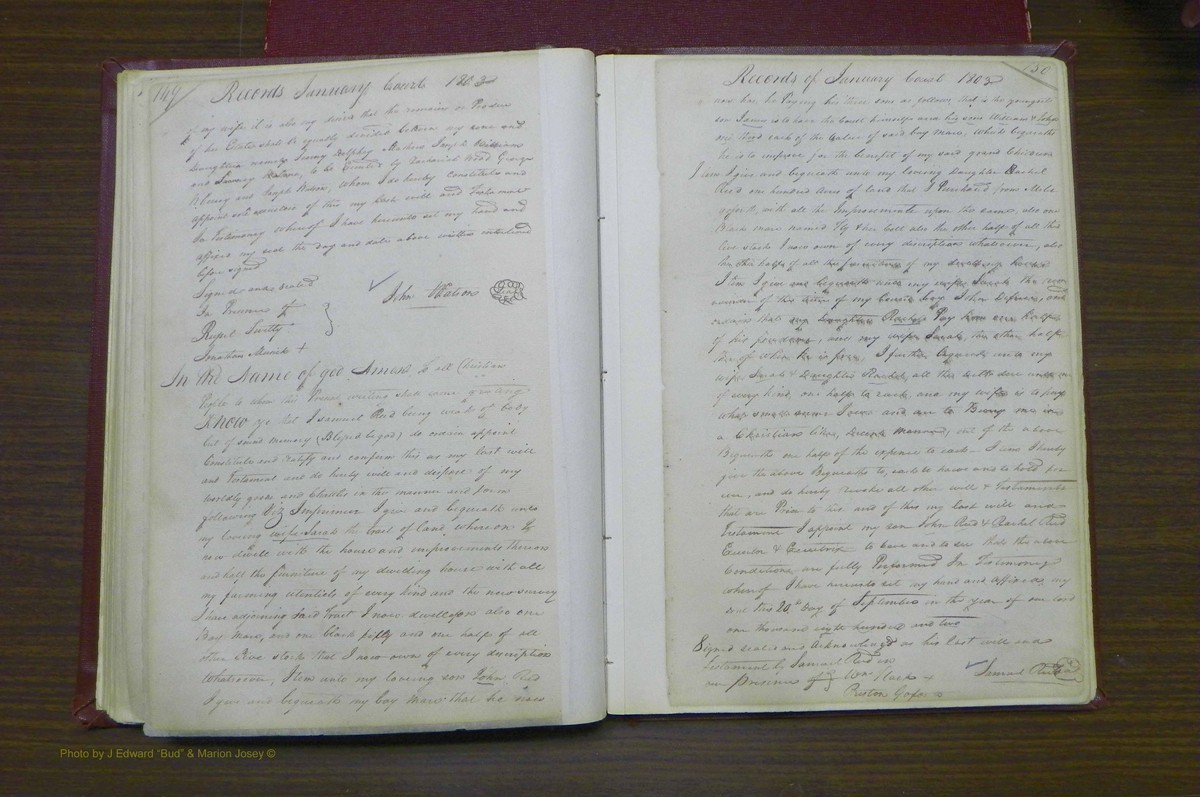 149 Records January Court 1803
of my wife it is also my desire that the remain or
of her Estate shall be equally divided between my sons and
Daughters namely Joseph William
and to be Executed by Zachariah George
and Joseph whom I do hereby constitute and
appoint sole executors of this my last will and Testament
In Testimony whereof I have hereunto set my hand and
affixed my seal the day and date above written interlined
before signed
Signed and sealed
In Presence of
John Watson Seal
In the Name of god Amen, to all Christian
People to whom this Present writing shall come greeting
Know ye that I Samuel Reed being weak of body
but of sound memory (Blessed be god) do ordain appoint
Constitute and Ratify and confirm this as my last will
and Testament and do hereby will and dispose of my
worldly goods and Chattles in the manner and form
following Viz Imprimis I give and bequeath unto
my loving wife Sarah the tract of land whereon I
now dwell with the house and improvements thereon
and half the furniture of my dwelling house with all
my farming utentials of every kind and the new survey
I have adjoining said tract I now dwell upon also one
Bay Mare, and one black filly and one half of all
other live stock that I now own of every description
Whatsoever, Item unto my loving son John Reed
I give and bequeath my bay Mare that he rides
150
Records of January Court 1803
now here he Paying his three sons as follows that is the youngest
son to have the Coult himself and his sons William & John
one third each of the value of said bay mare, which bequeaths
he is to improve for the benefit of my said grand Children
Item I give and bequeath unto my loving Daughter Rachel
Reed one hundred acres of land that I Purchased from
with all the Improvements upon the same, also one
Black mare named Fly & her colt also the other half of all the
live stock I now own of every description whatsoever, also
the other half of all the furniture of my dwelling house
Item I give and bequeath unto my wife Sarah the
remainder of the time of my bound boy John and
ordain that my Daughter Rachel Pay him one half
of his freedom, and my wife Sarah the other half
thereof when he is free, I further bequeath unto my
wife Sarah & Daughter Rachel all the
of every kind, one half to each and my wife is to pay
what small sums I owe and are to Bury me in
a Christian like, decent manner, out of the above
Bequeaths one half of the expence to each I give I hereby
give the above Bequeaths to, each to have and to hold for
ever, and do hereby revoke all other will & Testaments
that are Prior to this and of this my last will and
Testament I appoint my son John Reed & Rachel Reed
Executor & Executrix to have and to see that the above
Conditions are fully Performed In Testimony
whereof I have hereunto set my hand and affixed my
seal this 20th Day of September in the year of our lord
one thousand eight hundred and two
Signed sealed and acknowledged as his last will and
testament by Samuel Reed in
in presence of Wm
Preston
Samuel Reed Seal
Photo by J Edward "Bud" & Marion Josey ©